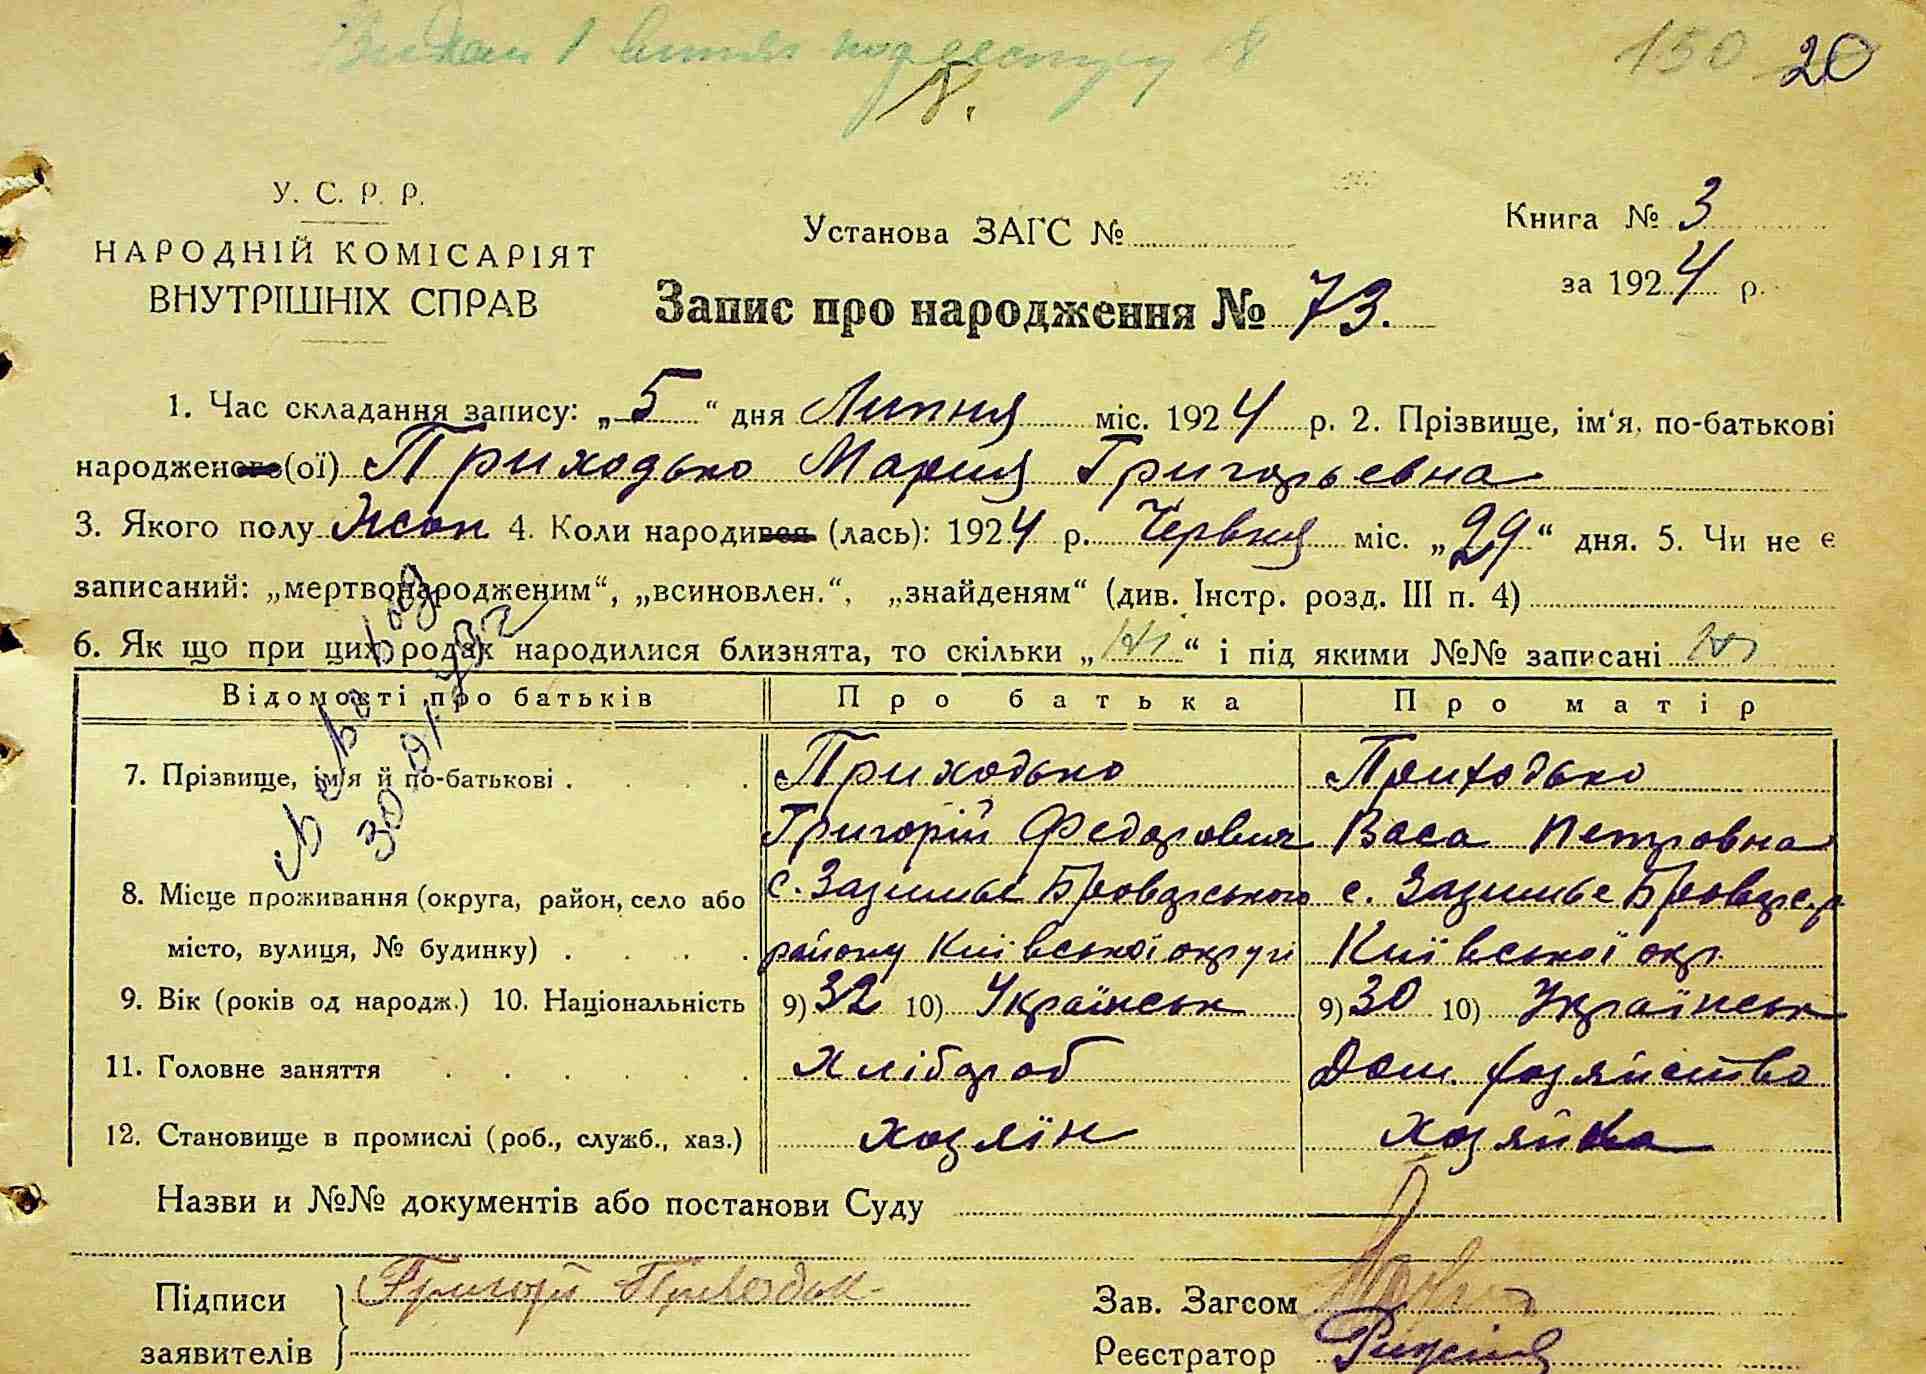 150 20
У. С. Р. Р.
НАРОДНІЙ КОМІСАРІЯТ
ВНУТРІШНІХ СПРАВ
Установа ЗАГС №
Книга № 3
за 1924 р.
Запис про народження № 73.
1. Час складання запису: „5“ дня Липня міс. 1924 р. 2. Прізвище, ім'я, по-батькові
народженого(ої) Приходько Мария Григорьевна
3. Якого полу жон 4. Коли народився (лась): 1924 р. Червня міс. „29“ дня. 5. Чи не є
записаний: „мертвонародженим“, „всиновлен.“, „знайденям“ (див. Інстр. розд. III п. 4)
6. Як що при цих родах народилися близнята, то скільки „ні“ і під якими №№ записані ні
Відомості про батьків Про батька Про матір
7. Прізвище, ім'я й по-батькові . . . . Приходько Приходько
Григорій Федорович Васа Петровна
8. Місце проживання (округа, район, село або с. Зазимье Броварського с. Зазимье Броварс. р
місто, вулиця, № будинку) . . . . району Київської округи Київської окр
9. Вік (років од народж.) 10. Національність 9) 32 10) Українськ 9) 30 10) Українськ
11. Головне заняття . . . . . . Хлібороб Дом. хозяйство
12. Становище в промислі (роб., служб., хаз.) хозяїн хозяйка
Назви и №№ документів або постанови Суду
Підписи Григорій Приходько Зав. Загсом
заявителів Реєстратор